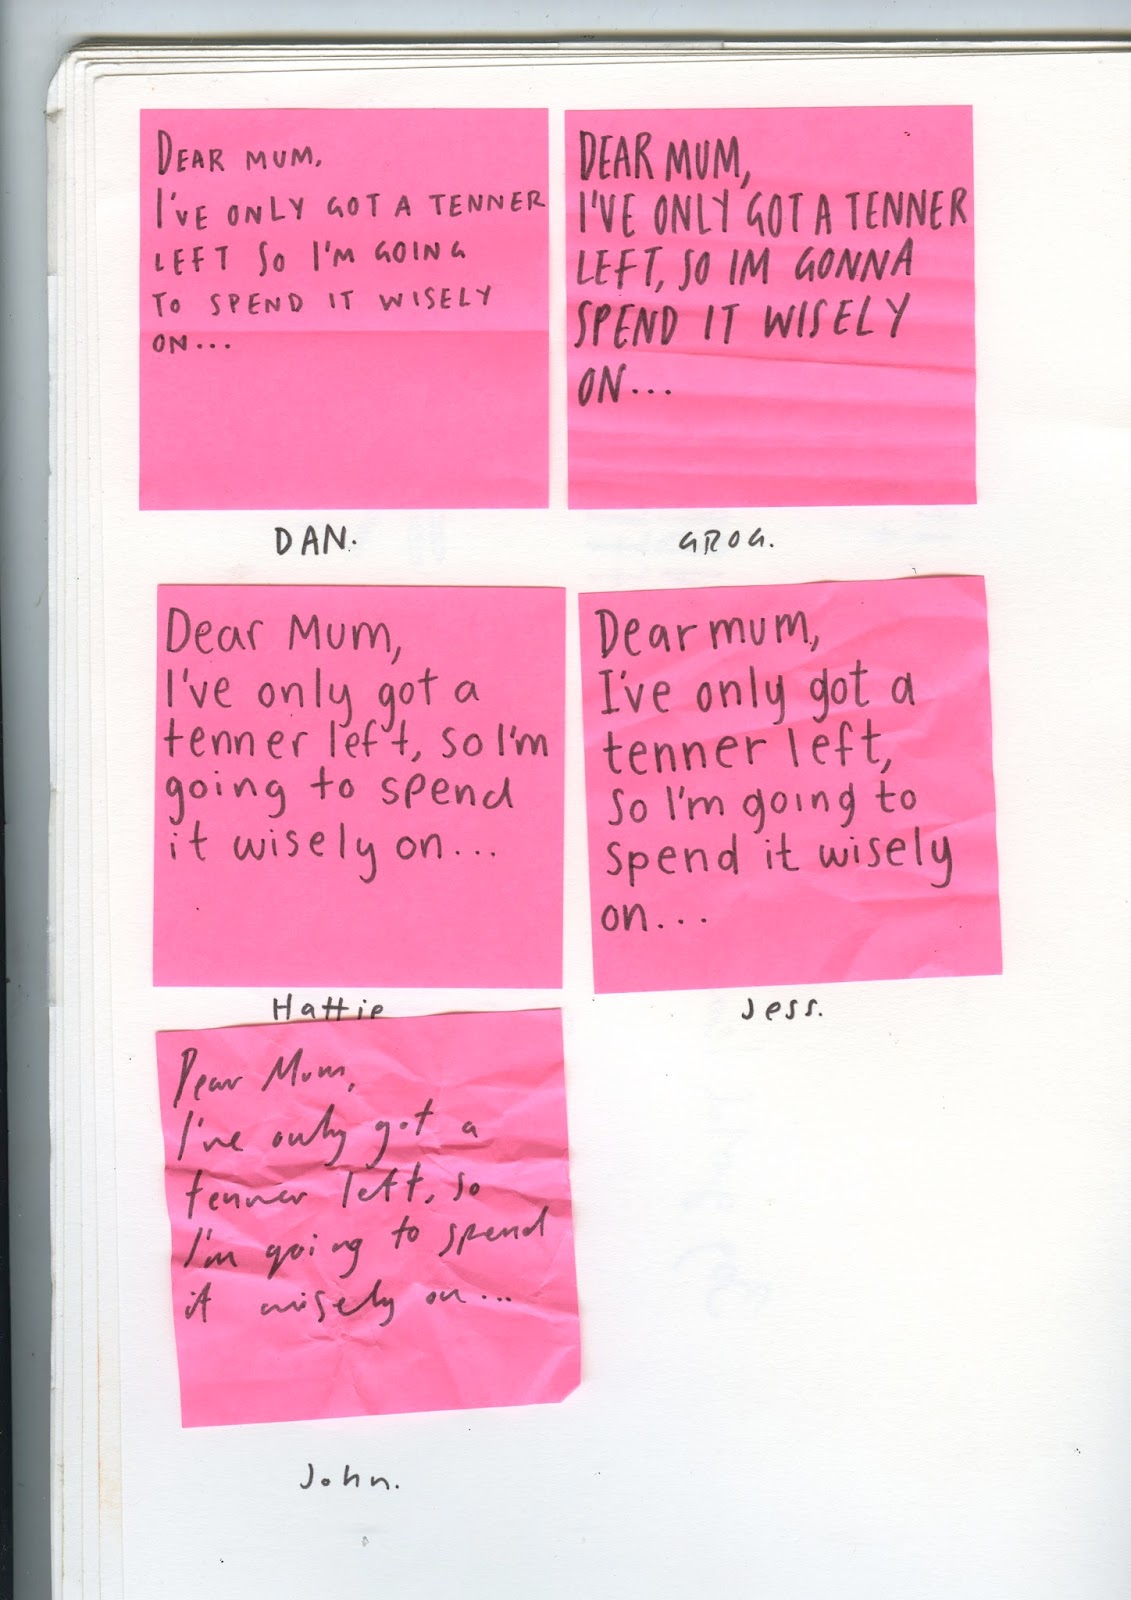 DEAR MUM,
I'VE ONLY GOT A TENNER
LEFT SO I'M GOING
TO SPEND IT WISELY
ON...
DAN.
DEAR MUM,
I'VE ONLY GOT A TENNER
LEFT, SO IM GONNA
SPEND IT WISELY
ON...
GROG.
Dear Mum,
I've only got a
tenner left, so I'm
going to spend
it wisely on...
Hattie
Dear mum,
I've only got a
tenner left,
so I'm going to
spend it wisely
on...
Jess.
Dear Mum,
I've only got a
tenner left, so
I'm going to spend
it wisely on...
John.